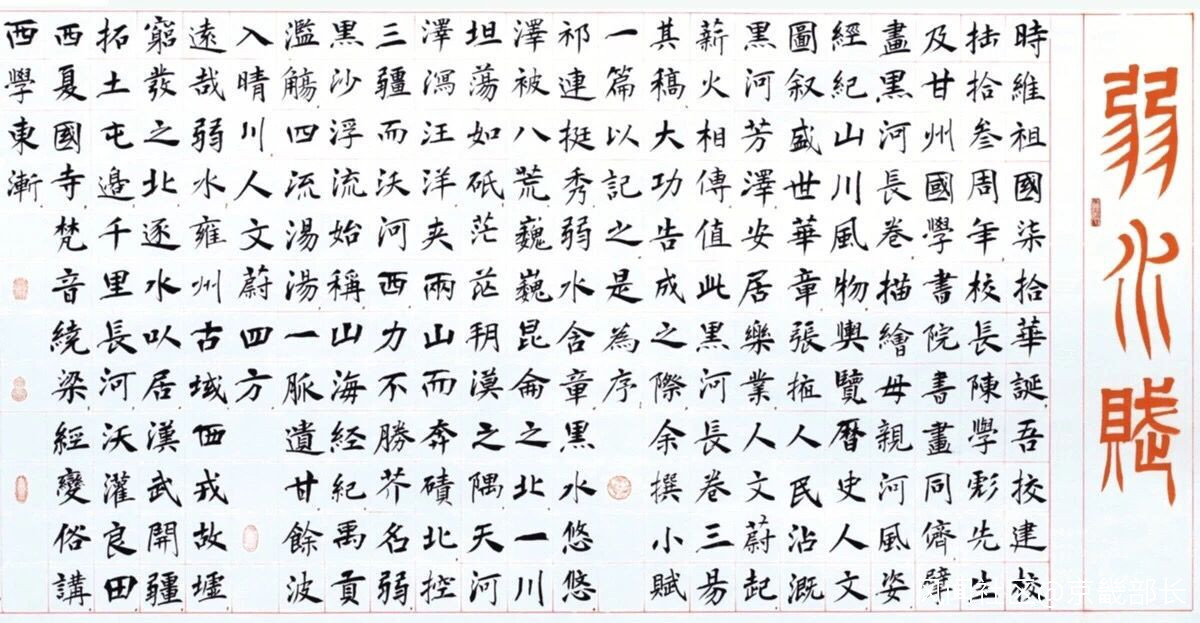 弱水賦
時維祖國柒拾華誕吾校建校
拾叁周年校長陳學彩先生
及甘州國學書院書畫同儕擘
畫黑河長卷描繪母親河風姿
經紀山川風物輿覽曆史人文
圖叙盛世華章張掖人民沾溉
黑河芳澤安居樂業人文蔚起
薪火相傳值此黑河長卷三易
其稿大功告成之際余撰小賦
一篇以記之是為序
祁連挺秀弱水含章黑水悠悠
澤被八荒巍巍昆侖之北一川
坦蕩如砥茫茫朔漠之隅天河
澤瀉汪洋夾兩山而奔磧北控
三疆而沃河西力不勝芥名弱
黑沙浮流始稱山海經紀禹貢
濫觴四流湯湯一脈遺甘餘波
入晴川人文蔚四方
遠哉弱水雍州古域西戎故墟
窮發之北逐水以居漢武開疆
拓土屯邊千里長河沃灌良田
西夏國寺梵音繞梁經變俗講
西學東漸
@京畿部长